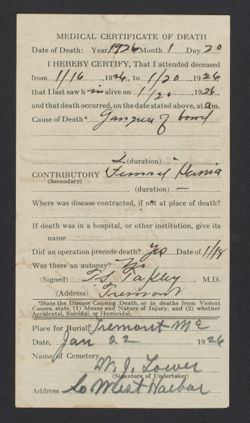 MEDICAL CERTIFICATE OF DEATH
Date of Death: Year, 1926 Month 1 Day 20
I HEREBY CERTIFY, That I attended deceased
from 1/16 1926, to 1/20 1926
that I last saw h is alive on 1/20 1926
and that death occurred, on the date stated above, at a m.
Cause of Death* Gangrene of bowel
2 (duration)
CONTRIBUTORY Femoral Hernia
(Secondary)
(duration) —
Where was disease contracted, if not at place of death?
If death was in a hospital, or other institution, give its
name
Did an operation precede death? Yes Date of 1/18
Was there an autopsy? No
(Signed) M.D.
(Address) Tremont
*State the Disease Causing Death, or in deaths from Violent
Causes, state, (1) Means and Nature of Injury, and (2) whether
Accidental, Suicidal, or Homicidal.
Place for Burial Tremont Me
Date, Jan 22 1926
Name of Cemetery
(Signature of Undertaker)
Address So West Harbor